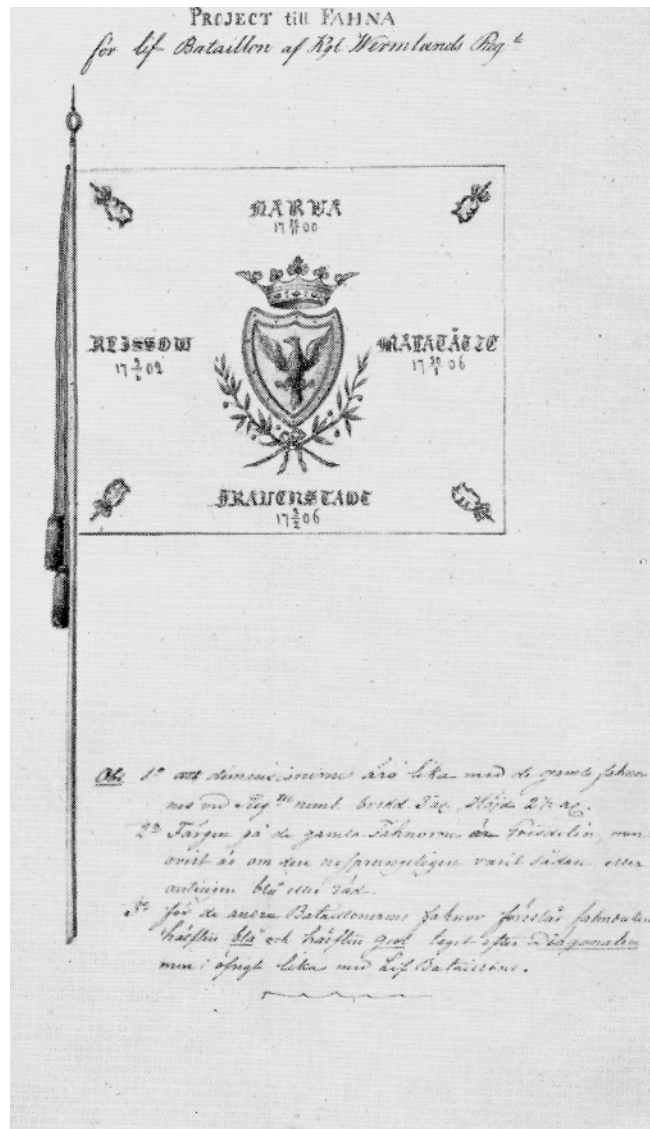 PROJECT till FAHNA
för lif Bataillon af Kgl Wermlands Reg:te
NARVA
17 00
KLISSOW
17 02
MALATÄTZE
17 06
FRAUENSTADT
17 3/2 06
Obs 1o att dimensionerne äro lika med de gamla fahnor
nes vid Reg:tet neml. bredd 3 aln, Höjd 2½ aln.
2o Färgen på de gamla Fahnorne är Frisdelin, men
ovist är om den ursprungeligen varit sådan, eller
antingen blå eller röd.
3o för de andra Bataillonerne fahnor föreslår fahnduken
hälften blå och hälften gul taget efter Diagonalen
men i öfrigt lika med Lif Bataillone.